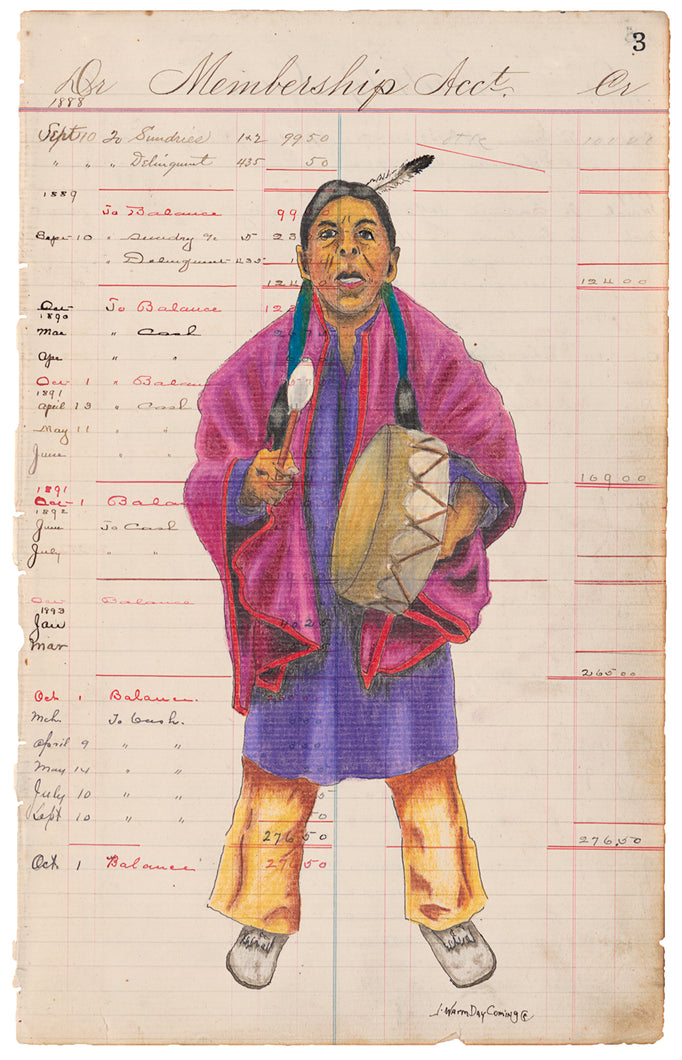 3
Dr Membership Acct. Cr
1888
Sept 10 To Sundries 1+2 99 50
" " " Delinquent 435 50
1889
To Balance 99
Sept 10 " Sundry
" Delinquent 435
124 00
Oct To Balance
1890
Mar " Cash
Apr " "
Oct 1 " Balance
1891
April 13 " Cash
May 11 " "
June " "
169 00
1891
Oct 1 Bala
1892
June To Cash
July " "
Oct Balance
1893
Jan
Mar
265 00
Oct 1 Balance.
Mch. To Cash.
April 9 " "
May 14 " "
July 10 " "
Sept 10 " " 50
276.50 276.50
Oct 1 Balance 276 50
J. WarmDayComing ©